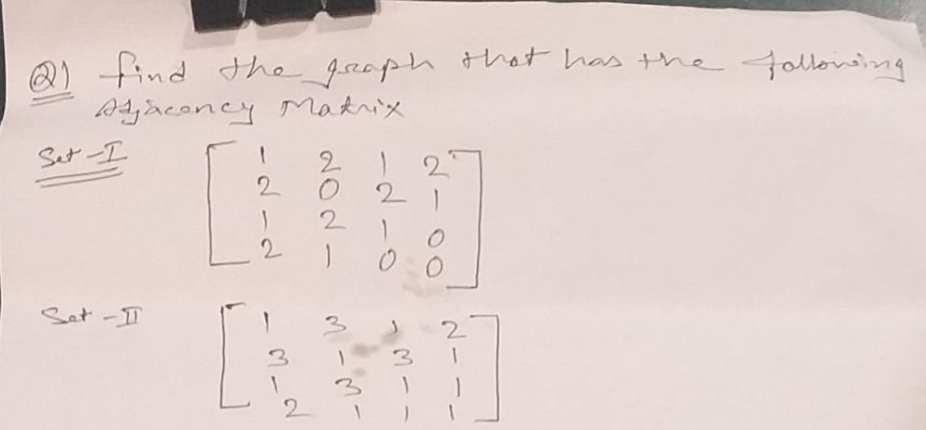 Q1) find the graph that has the following
Adjacency Matrix
Set-I
1 2 1 2
2 0 2 1
1 2 1 0
2 1 0 0
Set-II
1 3 1 2
3 1 3 1
1 3 1 1
2 1 1 1